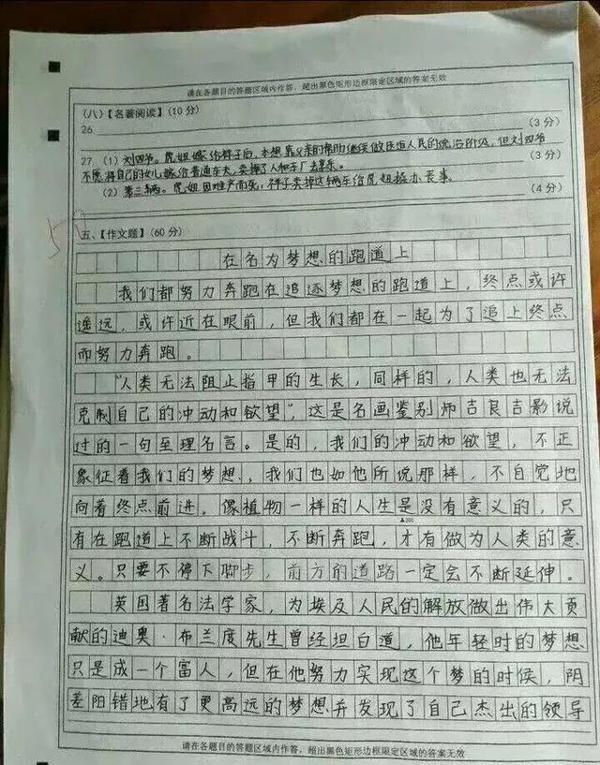 请在各题目的答题区域内作答，超出黑色矩形边框限定区域的答案无效
(八)【名著阅读】(10分)
26 (3分)
27 (1) 刘四爷。虎妞嫁给祥子后，本想靠父亲的帮助继续做压迫人民的统治阶级，但刘四爷 (3分)
不愿将自己的女儿嫁给普通车夫，卖掉了人和车厂去享乐。
(2) 第二辆。虎妞因难产而死，祥子卖掉这辆车给虎妞操办丧事。 (4分)
五、【作文题】(60分)
在名为梦想的跑道上
我们都努力奔跑在追逐梦想的跑道上，终点或许
遥远，或许近在眼前，但我们都在一起为了追上终点
而努力奔跑。
“人类无法阻止指甲的生长，同样的，人类也无法
克制自己的冲动和欲望”，这是名画鉴别师吉良吉影说
过的一句至理名言。是的，我们的冲动和欲望，不正
象征着我们的梦想，我们也如他所说那样，不自觉地
向着终点前进。像植物一样的人生是没有意义的，只
▲200
有在跑道上不断战斗，不断奔跑，才有做为人类的意
义。只要不停下脚步，前方的道路一定会不断延伸。
英国著名法学家，为埃及人民的解放做出伟大贡
献的迪奥·布兰度先生曾经坦白道，他年轻时的梦想
只是成一个富人，但在他努力实现这个梦的时候，阴
差阳错地有了更高远的梦想并发现了自己杰出的领导
请在各题目的答题区域内作答，超出黑色矩形边框限定区域的答案无效